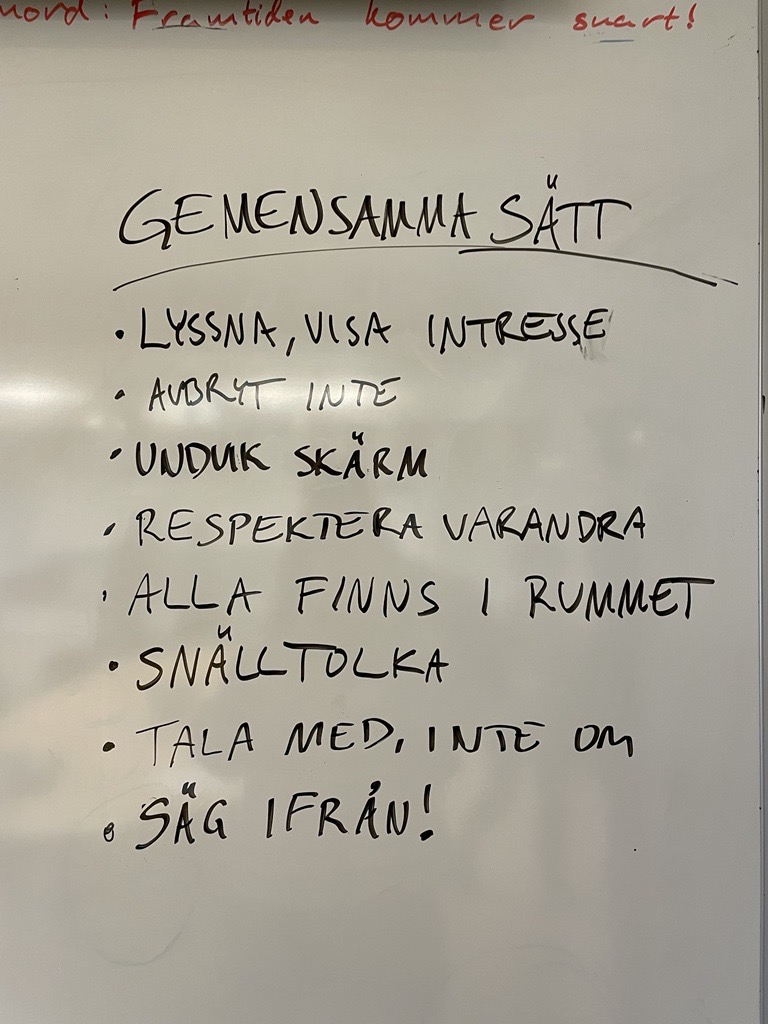 Framtiden kommer snart!
GEMENSAMMA SÄTT
• LYSSNA, VISA INTRESSE
• AVBRYT INTE
• UNDVIK SKÄRM
• RESPEKTERA VARANDRA
• ALLA FINNS I RUMMET
• SNÄLLTOLKA
• TALA MED, INTE OM
• SÄG IFRÅN!